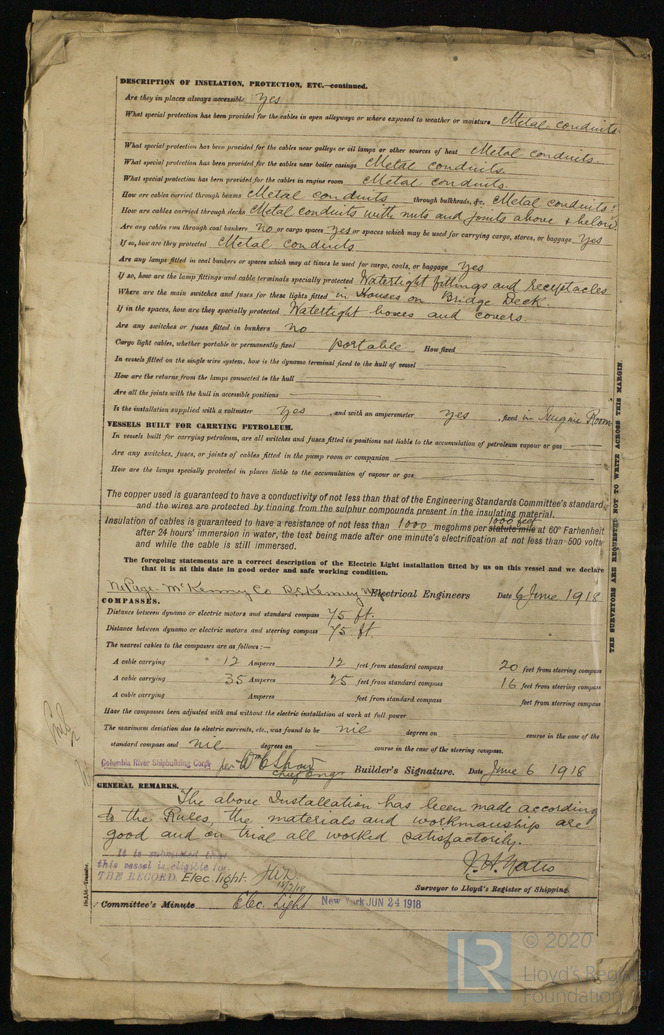 DESCRIPTION OF INSULATION, PROTECTION, ETC.—continued.
Are they in places always accessible yes
What special protection has been provided for the cables in open alleyways or where exposed to weather or moisture Metal conduits
What special protection has been provided for the cables near galleys or oil lamps or other sources of heat Metal conduits
What special protection has been provided for the cables near boiler casings Metal conduits.
What special protection has been provided for the cables in engine room Metal conduits.
How are cables carried through beams Metal conduits through bulkheads, &c. Metal conduits
How are cables carried through decks Metal conduits with nuts and joints above & below
Are any cables run through coal bunkers no or cargo spaces yes or spaces which may be used for carrying cargo, stores, or baggage yes
If so, how are they protected Metal conduits
Are any lamps fitted in coal bunkers or spaces which may at times be used for cargo, coals, or baggage yes
If so, how are the lamp fittings and cable terminals specially protected Watertight fittings and receptacles
Where are the main switches and fuses for these lights fitted in Houses on Bridge Deck.
If in the spaces, how are they specially protected Watertight boxes and covers
Are any switches or fuses fitted in bunkers no
Cargo light cables, whether portable or permanently fixed portable How fixed
In vessels fitted on the single wire system, how is the dynamo terminal fixed to the hull of vessel
How are the returns from the lamps connected to the hull
Are all the joints with the hull in accessible positions
Is the installation supplied with a voltmeter yes , and with an amperemeter yes , fixed in Engine Room
VESSELS BUILT FOR CARRYING PETROLEUM.
In vessels built for carrying petroleum, are all switches and fuses fitted in positions not liable to the accumulation of petroleum vapour or gas
Are any switches, fuses, or joints of cables fitted in the pump room or companion
How are the lamps specially protected in places liable to the accumulation of vapour or gas
The copper used is guaranteed to have a conductivity of not less than that of the Engineering Standards Committee's standard,
and the wires are protected by tinning from the sulphur compounds present in the insulating material.
Insulation of cables is guaranteed to have a resistance of not less than 1000 megohms per statute mile 1000 feet at 60° Farhenheit
after 24 hours' immersion in water, the test being made after one minute's electrification at not less than 500 volts
and while the cable is still immersed.
The foregoing statements are a correct description of the Electric Light installation fitted by us on this vessel and we declare
that it is at this date in good order and safe working condition.
NePage McKenny Co Electrical Engineers Date 6 June 1918
COMPASSES.
Distance between dynamo or electric motors and standard compass 75 ft.
Distance between dynamo or electric motors and steering compass 75 ft.
The nearest cables to the compasses are as follows:—
A cable carrying 12 Amperes 12 feet from standard compass 20 feet from steering compass
A cable carrying 35 Amperes 25 feet from standard compass 16 feet from steering compass
A cable carrying Amperes feet from standard compass feet from steering compass
Have the compasses been adjusted with and without the electric installation at work at full power
The maximum deviation due to electric currents, etc., was found to be nil degrees on course in the case of the
standard compass and nil degrees on course in the case of the steering compass.
Columbia River Shipbuilding Corp. per Wm E Shaw Builder's Signature. Date June 6 1918
Chief Eng
GENERAL REMARKS.
The above Installation has been made according
to the Rules, the materials and workmanship are
good and on trial all worked satisfactorily.
It is submitted that
this vessel is eligible for
THE RECORD. Elec. light.
Surveyor to Lloyd's Register of Shipping
Committee's Minute Elec. Light New York JUN 24 1918
THE SURVEYORS ARE REQUESTED NOT TO WRITE ACROSS THIS MARGIN.
LR
© 2020
Lloyd's Register
Foundation